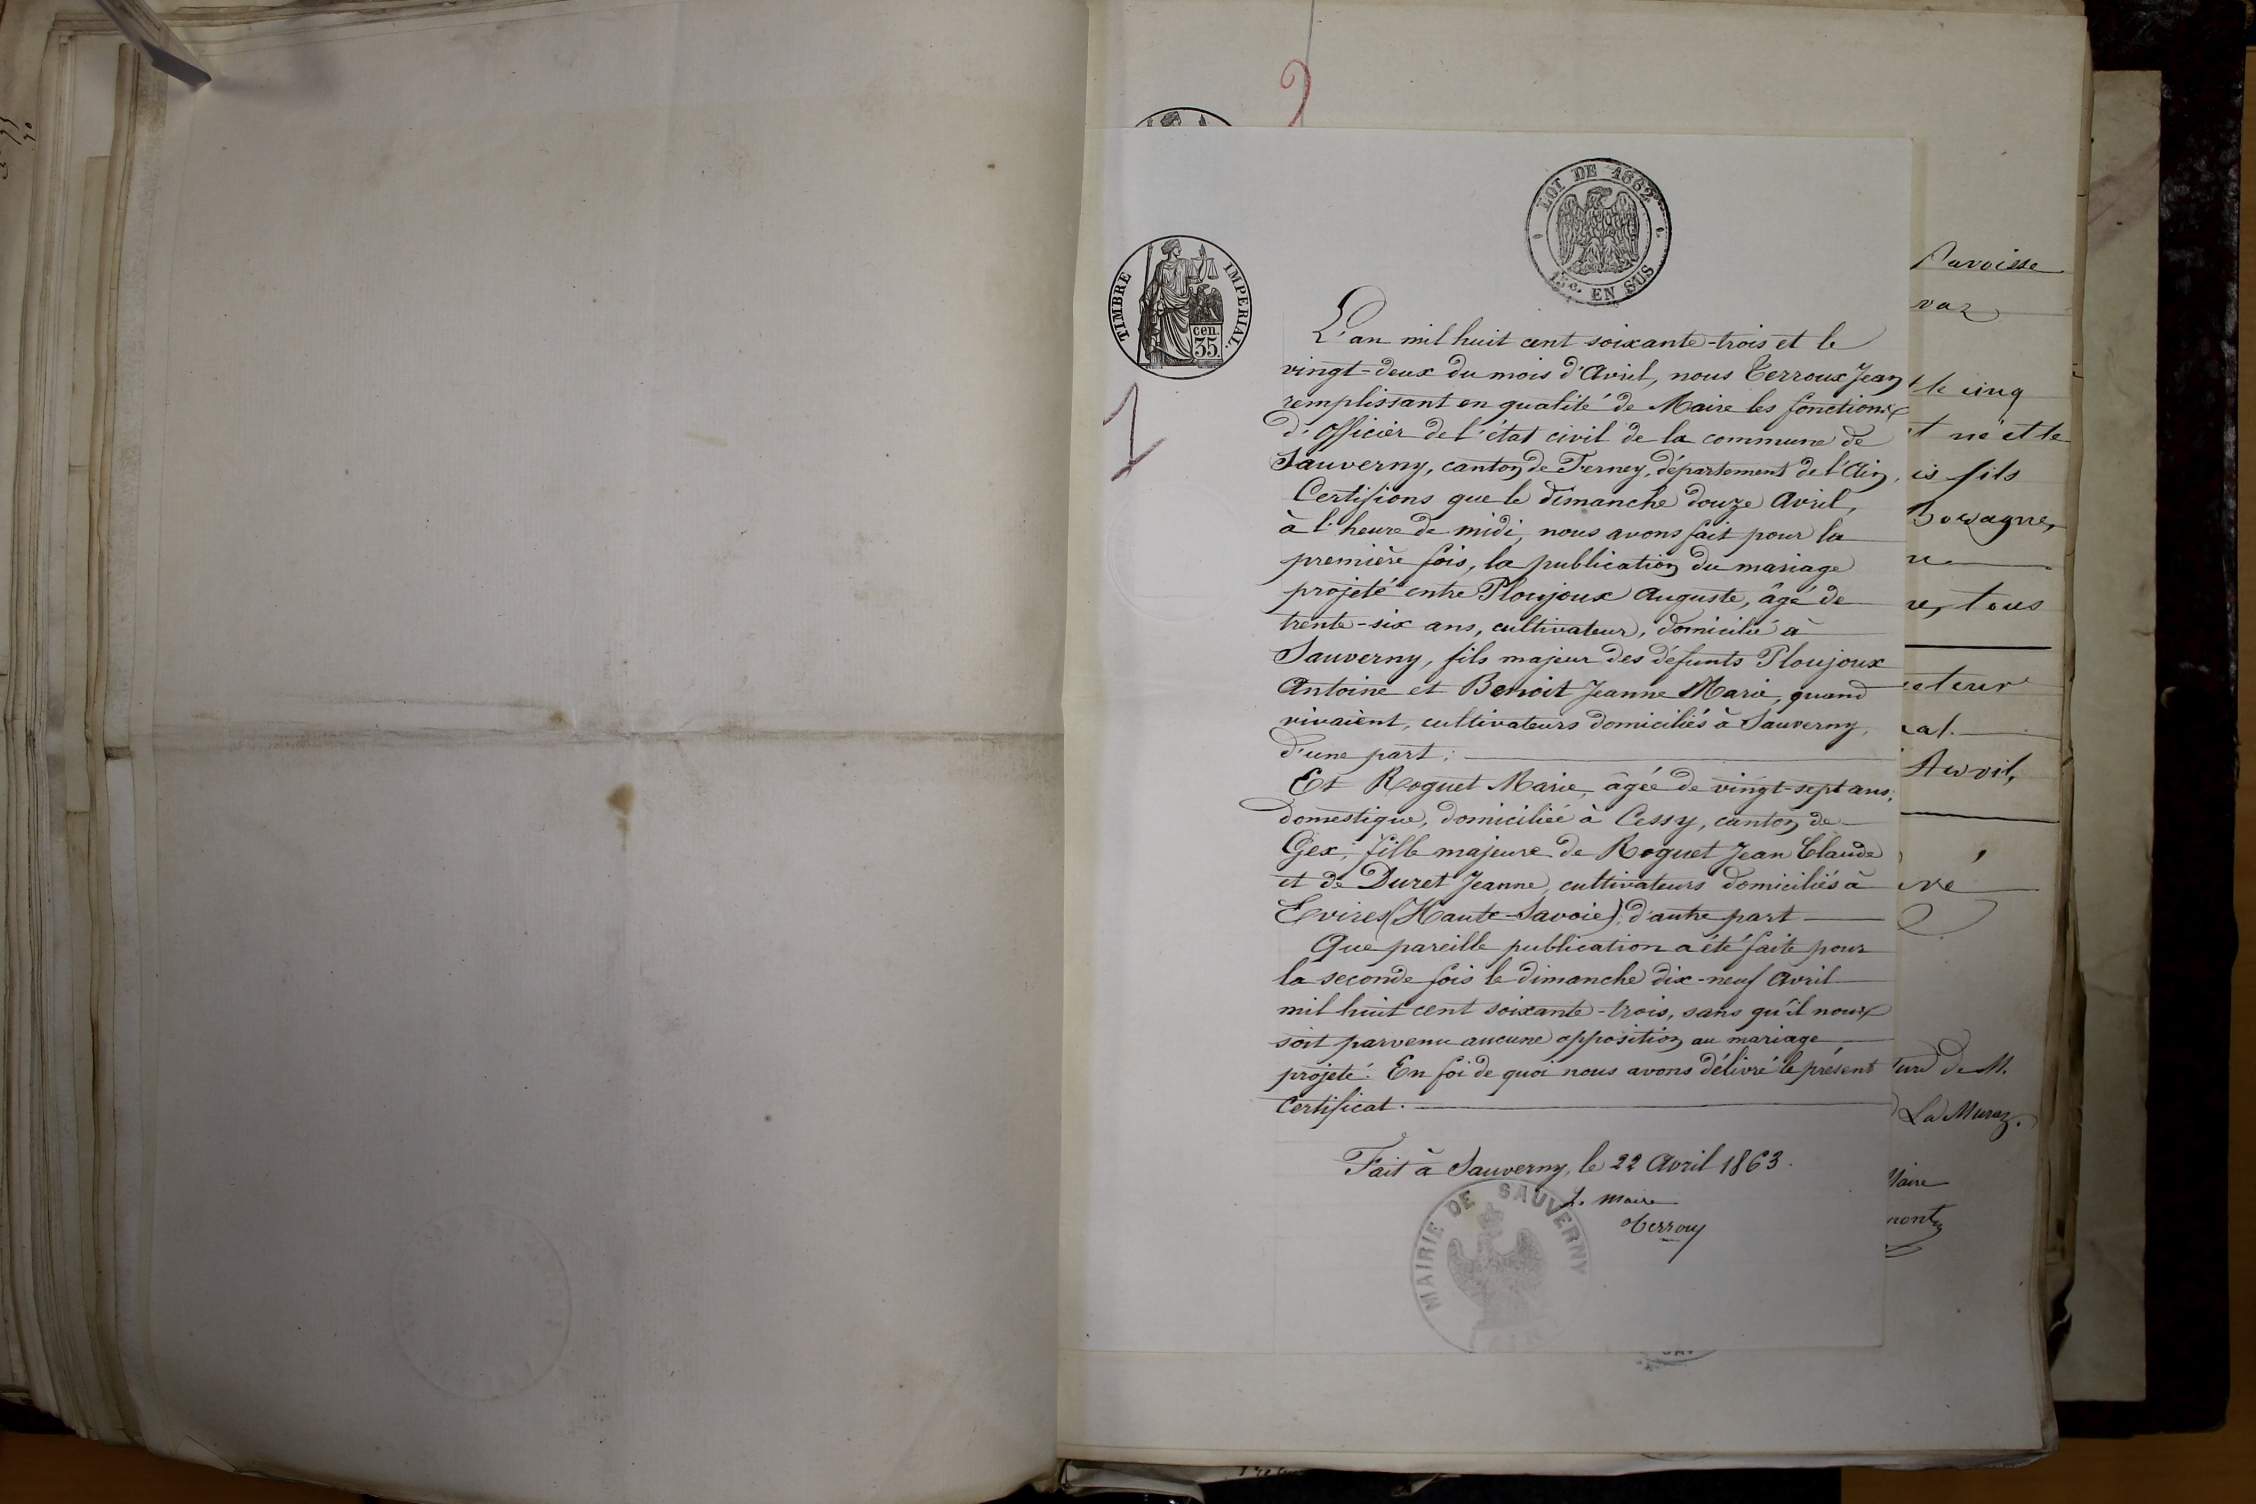 2
LOI DE 1862
15c. EN SUS
TIMBRE IMPERIAL.
cen.
35
1
L'an mil huit cent soixante-trois et le
vingt-deux du mois d'Avril, nous Terroux Jean
remplissant en qualité de Maire les fonctions
d'officier de l'état civil de la commune de
Sauverny, canton de Ferney, département de l'Ain,
Certifions que le dimanche douze Avril,
à l'heure de midi, nous avons fait pour la
première fois, la publication du mariage
projeté entre Ploujoux Auguste, âgé de
trente-six ans, cultivateur, domicilié à
Sauverny, fils majeur des défunts Ploujoux
Antoine et Benoit Jeanne Marie, quand
vivaient, cultivateurs domiciliés à Sauverny,
d'une part;
Et Roguet Marie, âgée de vingt-sept ans,
domestique, domiciliée à Cessy, canton de
Gex, fille majeure de Roguet Jean Claude
et de Duret Jeanne, cultivateurs domiciliés à
Evires (Haute-Savoie), d'autre part
Que pareille publication a été faite pour
la seconde fois le dimanche dix-neuf Avril
mil huit cent soixante-trois, sans qu'il nous
soit parvenu aucune opposition au mariage
projeté. En foi de quoi nous avons délivré le présent
Certificat.
Fait à Sauverny, le 22 Avril 1863.
Le Maire
Terroux
MAIRIE DE SAUVERNY
Paroisse
vaz
le cinq
né et le
is fils
tous
Avril,
de M.
La Muraz.